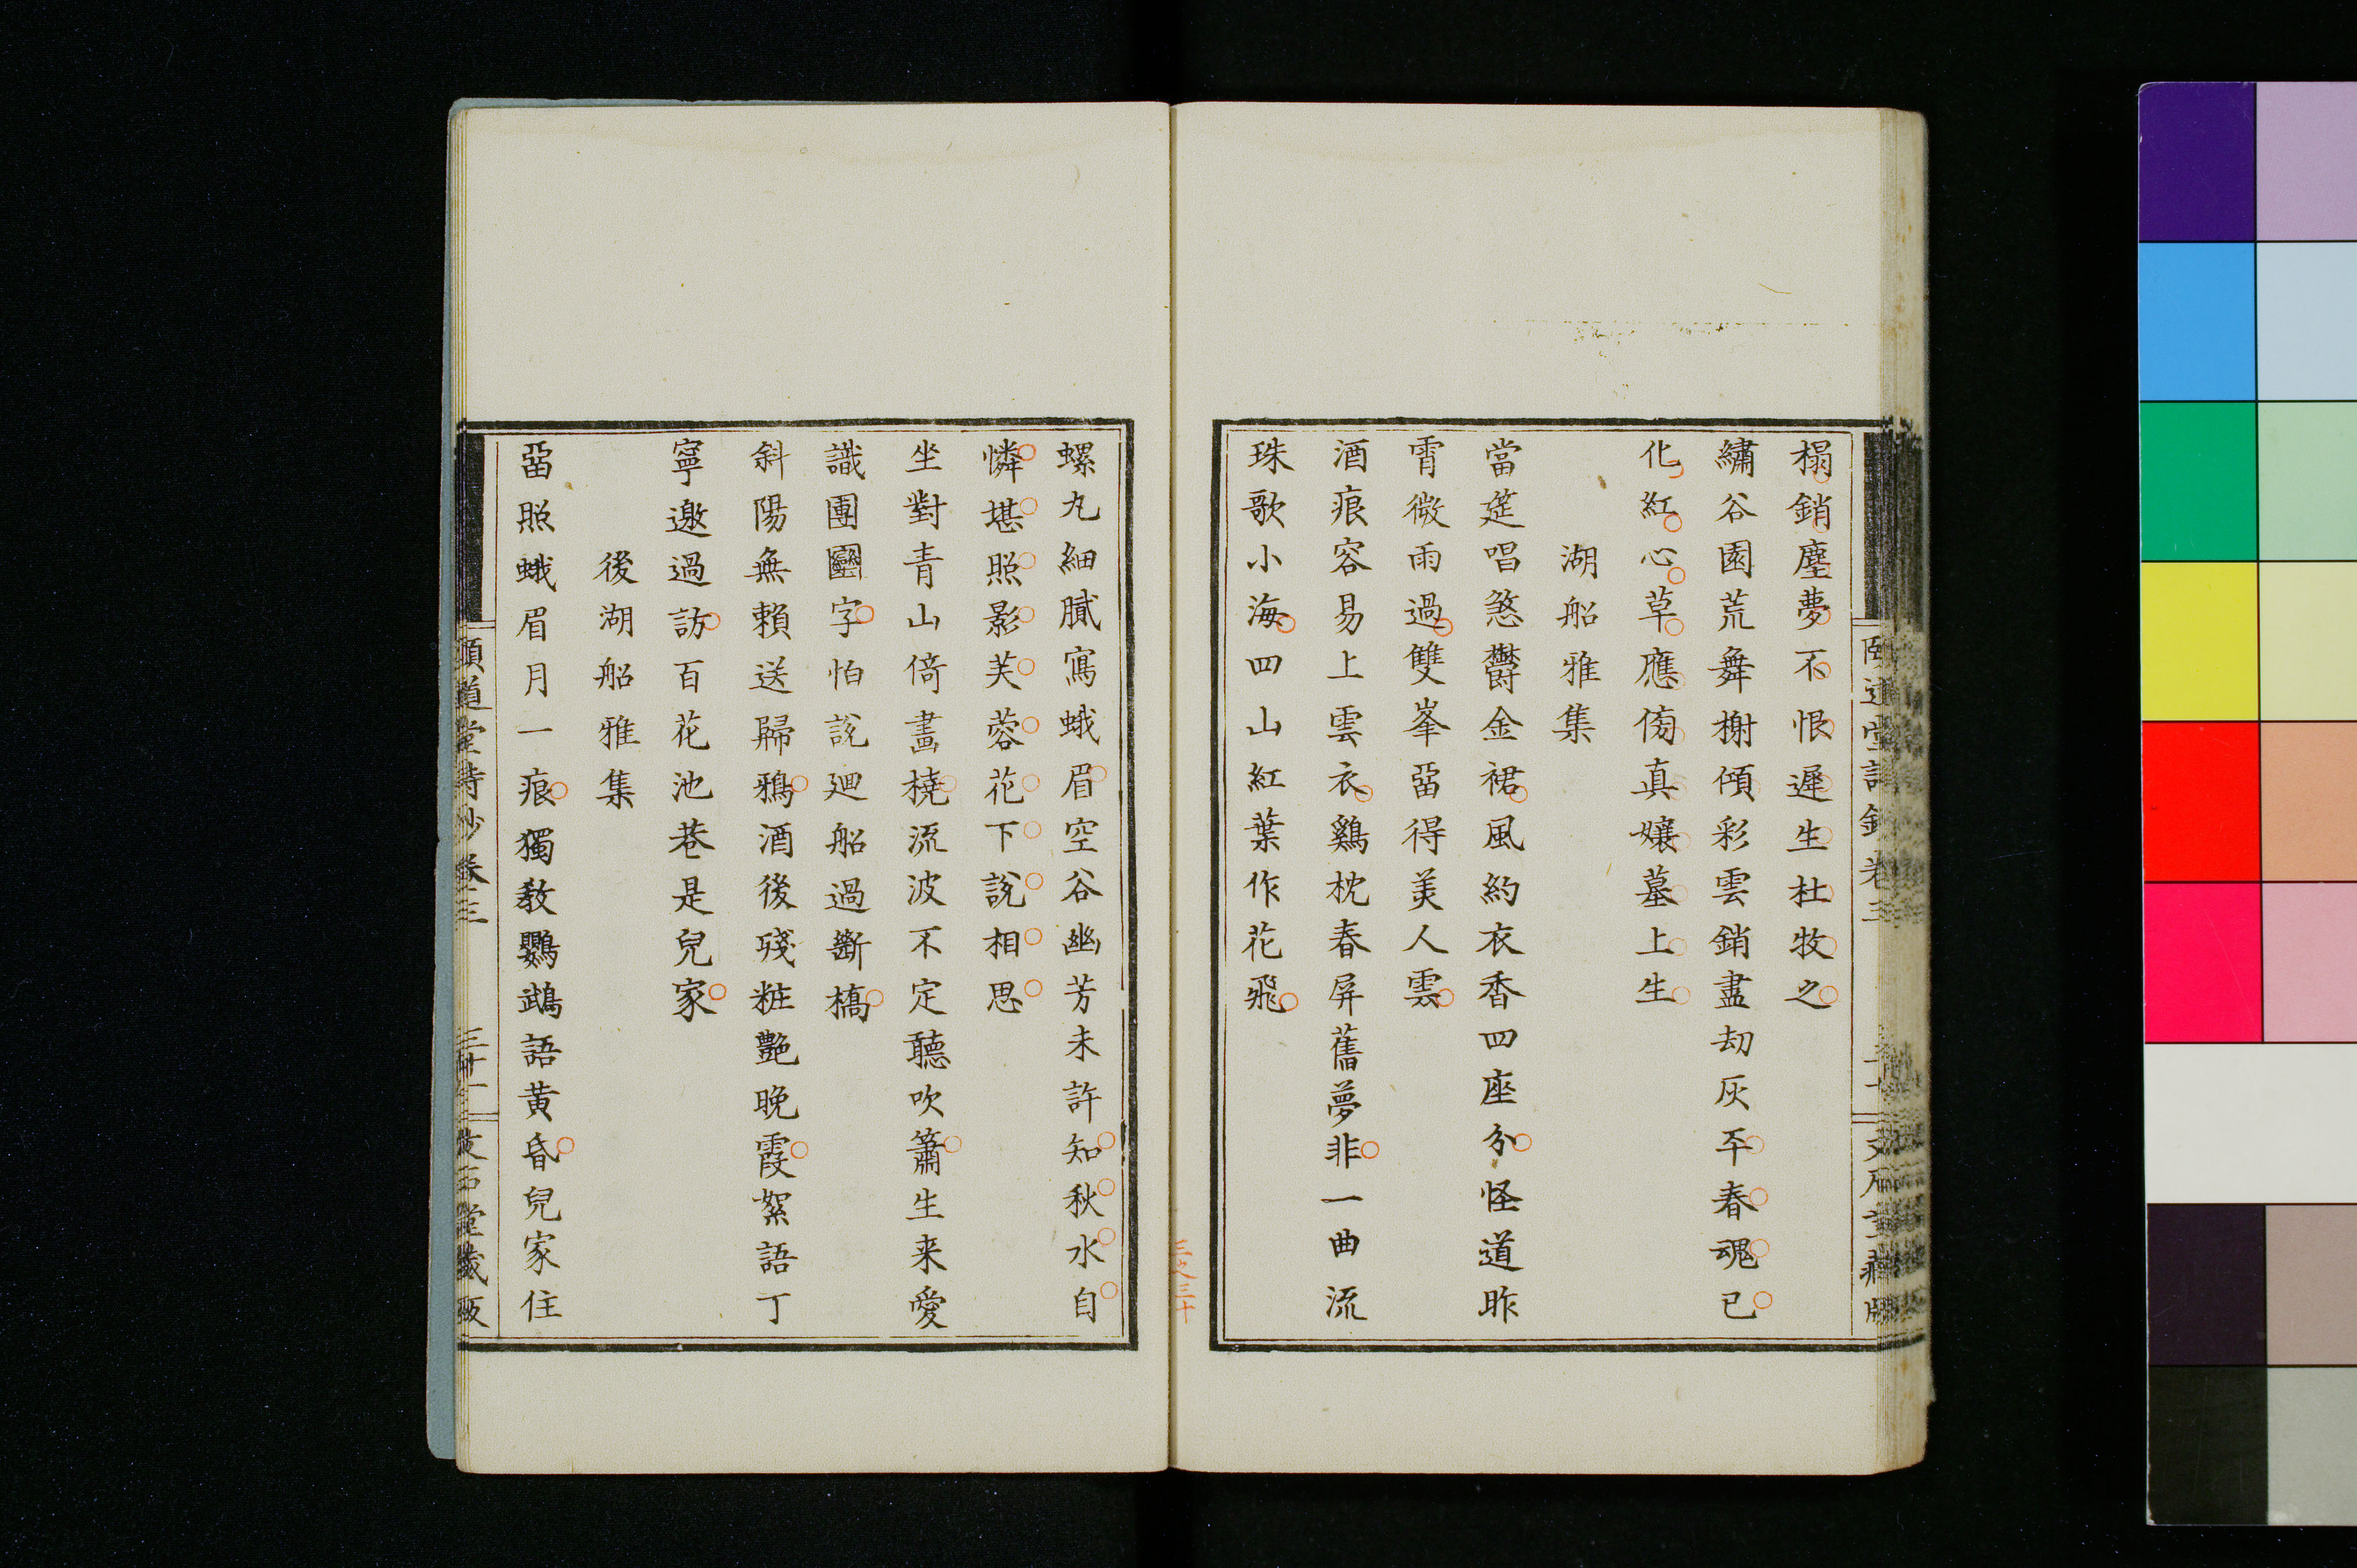 頤道堂詩鈔卷三
文石堂藏版
榻銷塵夢不恨遲生杜牧之
繡谷園荒舞榭傾彩雲銷盡劫灰平春魂已
化紅心草應傍真孃墓上生
湖船雅集
當筵唱煞鬱金裙風約衣香四座分怪道昨
宵微雨過雙峯畱得美人雲
酒痕容易上雲衣鷄枕春屏舊夢非一曲流
珠歌小海四山紅葉作花飛
三之三十
螺丸細膩寫蛾眉空谷幽芳未許知秋水自
憐堪照影芙蓉花下說相思
坐對青山倚畫橈流波不定聽吹簫生来愛
識團圞字怕說廻船過斷橋
斜陽無賴送歸鴉酒後殘粧艷晚霞絮語丁
寧邀過訪百花池巷是兒家
後湖船雅集
畱照蛾眉月一痕獨教鸚鵡語黃昏兒家住
頤道堂詩鈔卷三
三十一
文石堂藏版